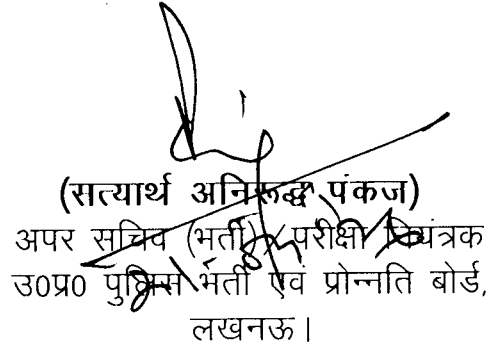 (सत्यार्थ अनिरूद्ध पंकज)
अपर सचिव (भर्ती)/परीक्षा नियंत्रक
उ0प्र0 पुलिस भर्ती एवं प्रोन्नति बोर्ड,
लखनऊ।